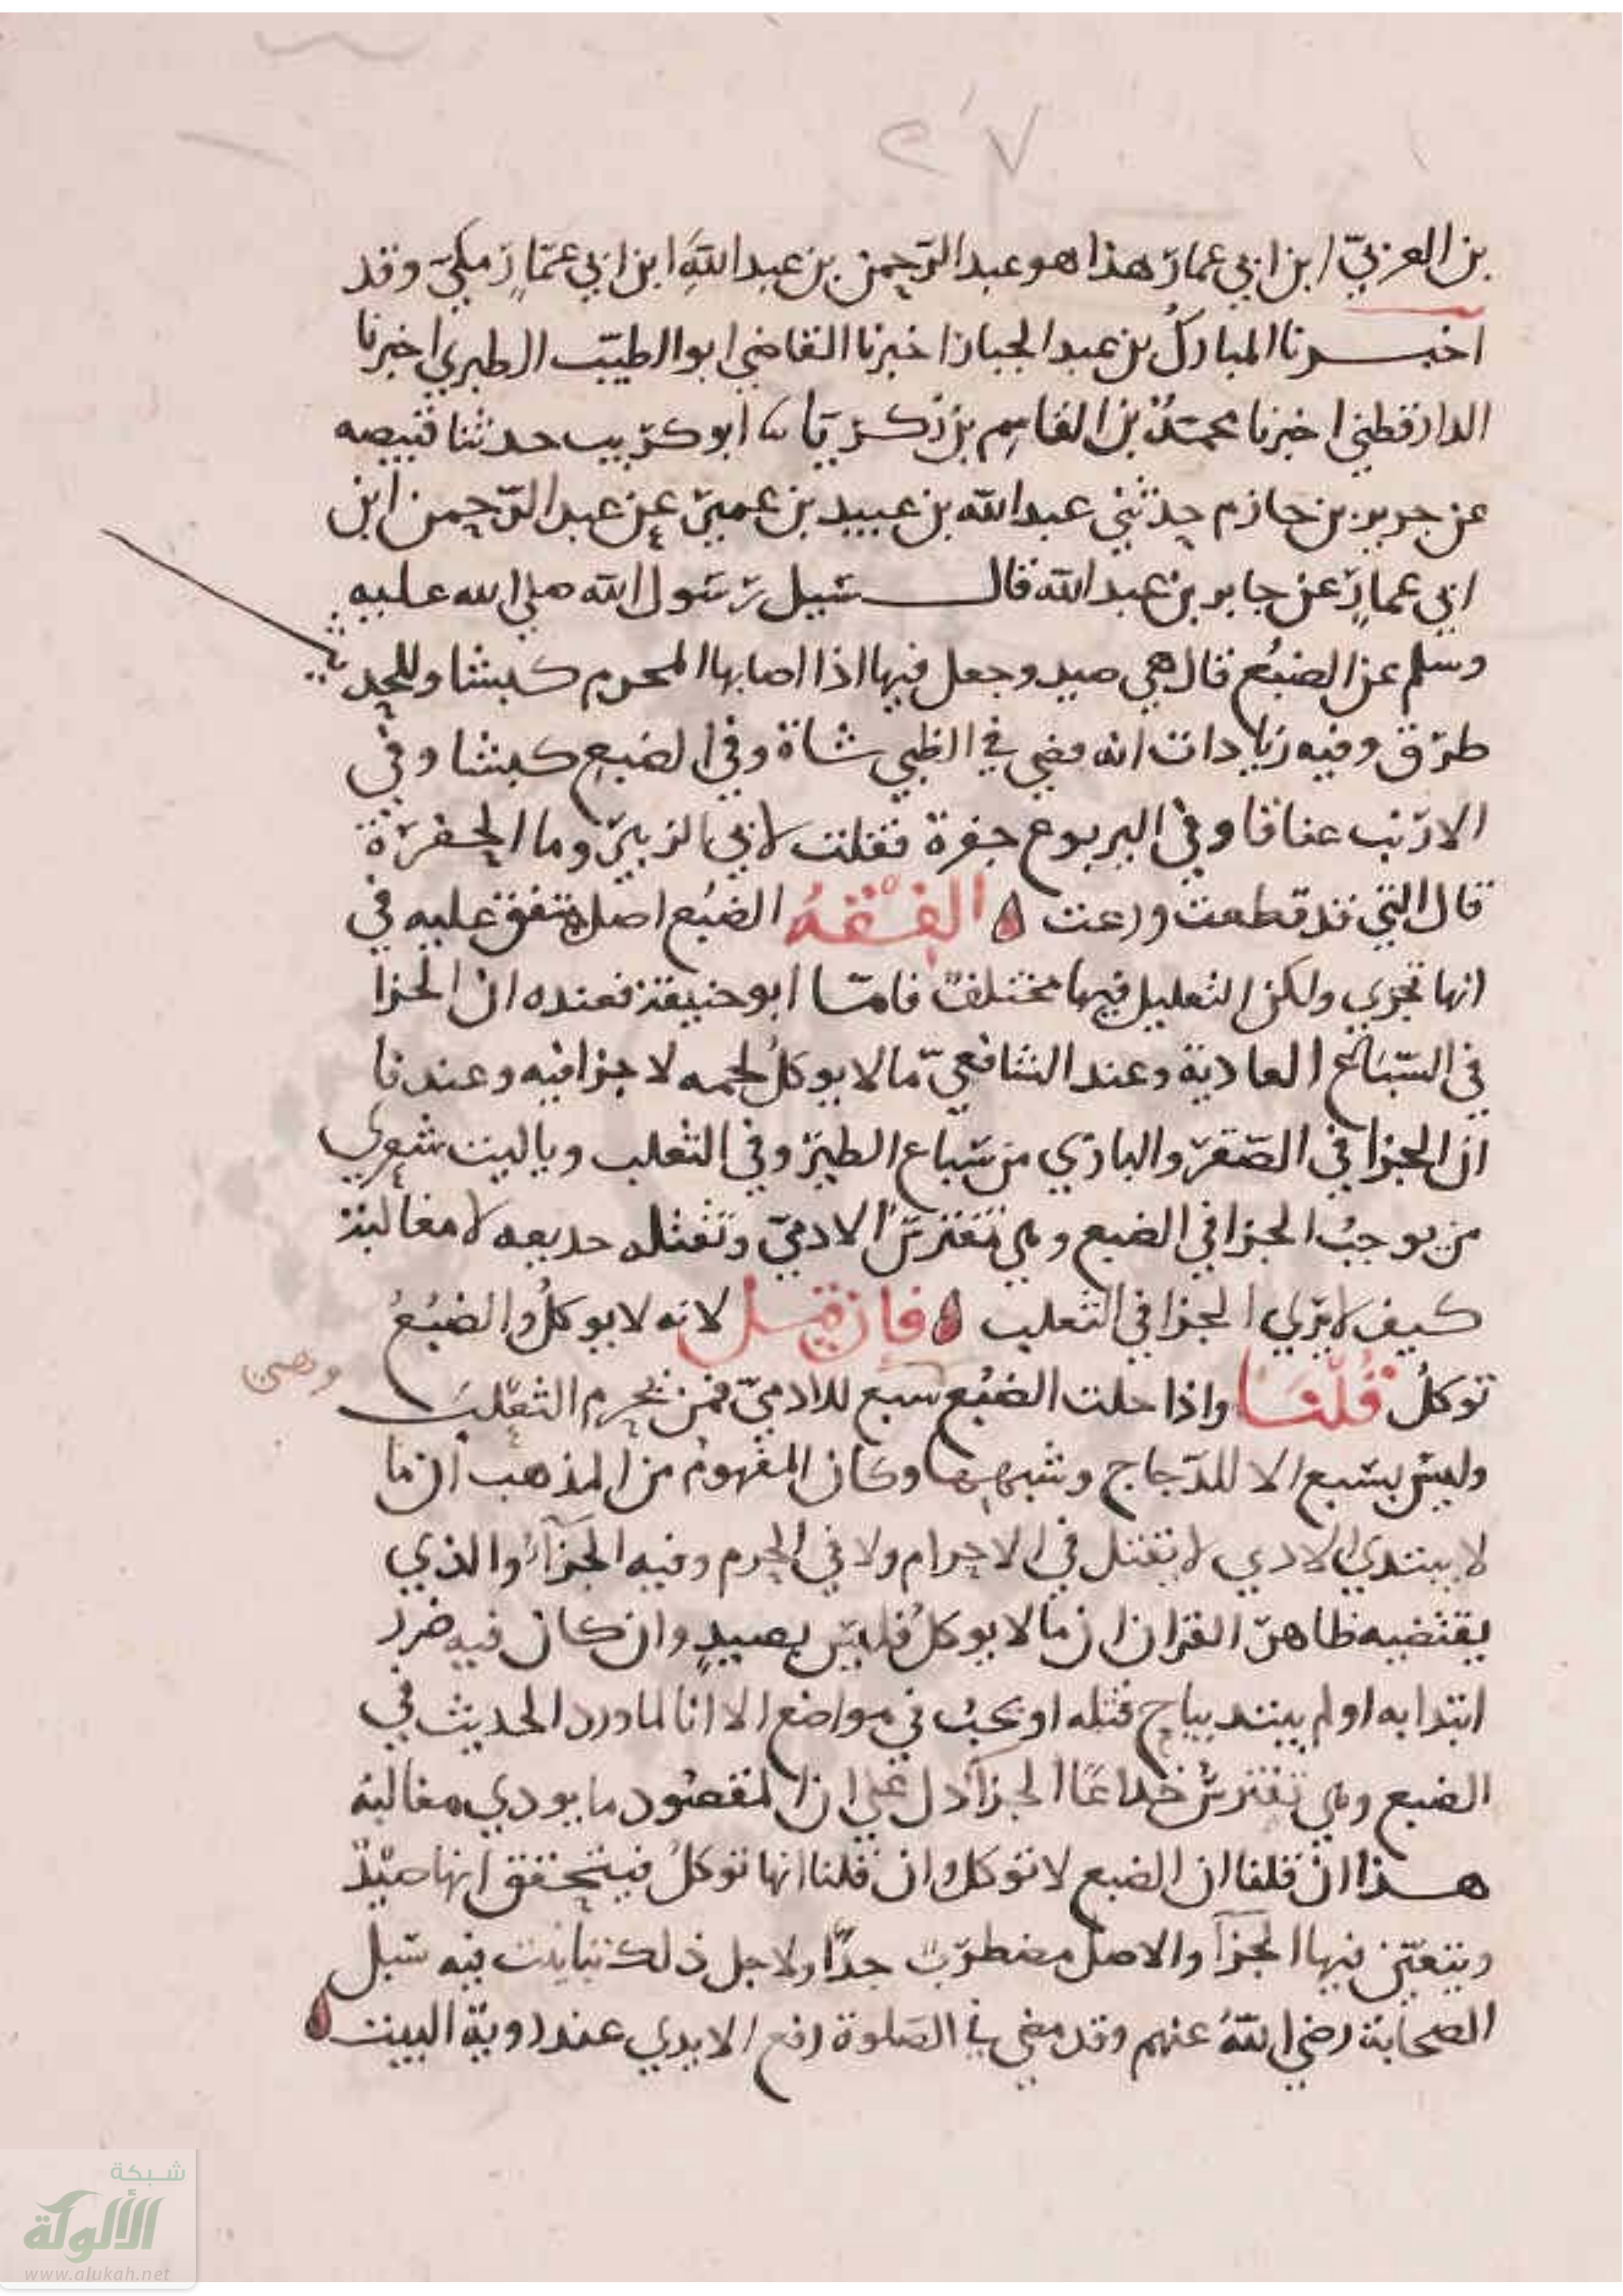 ٢٧
بن العربيّ ابن ابي عمار هذا هو عبد الرحمن بن عبد الله ابن ابي عمّار مكيّ وقد
اخبرنا المبارك بن عبد الجبار اخبرنا القاضي ابو الطيّب الطبري اخبرنا
الدارقطني اخبرنا محمد بن القاسم بن زكريا نا ابو كريب حدثنا قبيصه
عن جرير بن حازم حدثني عبد الله بن عبيد بن عمير عن عبد الرحمن ابن
ابي عمارٍ عن جابر بن عبد الله قال سيل رسول الله صلى الله عليه
وسلم عن الضبُع قال هي صيد وجعل فيها اذا اصابها المحرم كبشا وللحديث
طرق وفيه زيادات انه قضى في الظبي شاة وفي الضبع كبشا وفي
الارنب عناقا وفي اليربوع جفرة فقلت لابي الزبير وما الجفرة
قال التي قد قطعت ورعت الفقهُ الضبُع اصل متفق عليه في
انها تجزي ولكن التعليل فيها مختلف فامّا ابو حنيفة فعنده ان الجزا
في السباع العادية وعند الشافعيّ ما لا يوكلُ لحمه لا جزا فيه وعندنا
ان الجزا في الصقر والبازي من سباع الطير وفي الثعلب ويا ليت شعري
من يوجبُ الجزا في الضبع وهي تفترسُ الادميّ وتقتله خديعه لا مغالبة
كيف لا يري الجزا في الثعلب فان قيل لانه لا يوكلُ والضبُعُ
توكلُ قُلنا واذا حلت الضبُع سبع للادميّ فمن يحرم الثعلب
وهي
وليس بسبع الا للدجاج وشبهها وكان المفهوم من المذهب ان ما
لا يبتدي الادي لا يقتل في الاحرام ولا في الحرم وفيه الجزآء والذي
يقتضيه ظاهر القران ان ما لا يوكلُ فليس بصيدٍ وان كان فيه ضرر
ابتدا به او لم يبتد يباح قتله او يجبُ في مواضع الا انا لما ورد الحديث في
الضبع وهي تفترسُ خداعًا الجزآ دل على ان المقصُود ما يودي مغالبة
هذا ان قلنا ان الضبع لا توكل وان قلنا انها توكلُ فيتحقق انها صيدٌ
ويتعيّن فيها الجزآ والاصل مضطربٌ جدًّا ولاجل ذلك تباينت فيه سبل
الصحابة رضي اللهُ عنهم وقد مضى في الصلوة رفع الايدي عند روية البيت
شبكة
الألوكة
www.alukah.net